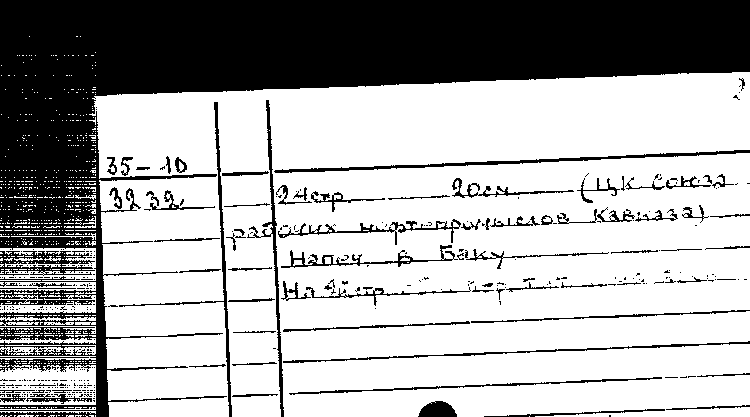 2
35-10
3232 24стр. 20см. (ЦК Союза
рабочих нефтепромыслов Кавказа)
Напеч. в Баку
На стр.